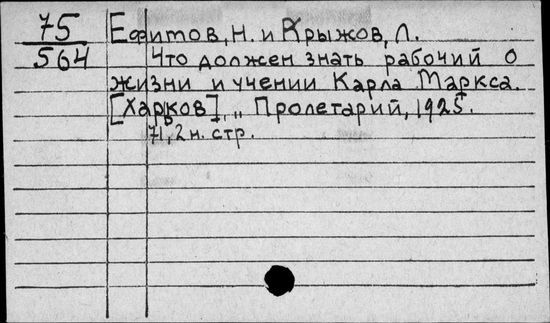 75
564
Ефимов, Н. и Крыжов, Л.
Что должен знать рабочий о
жизни и учении Карла Маркса.
[Харков], „Пролетарий, 1925.
71, 2 н. стр.